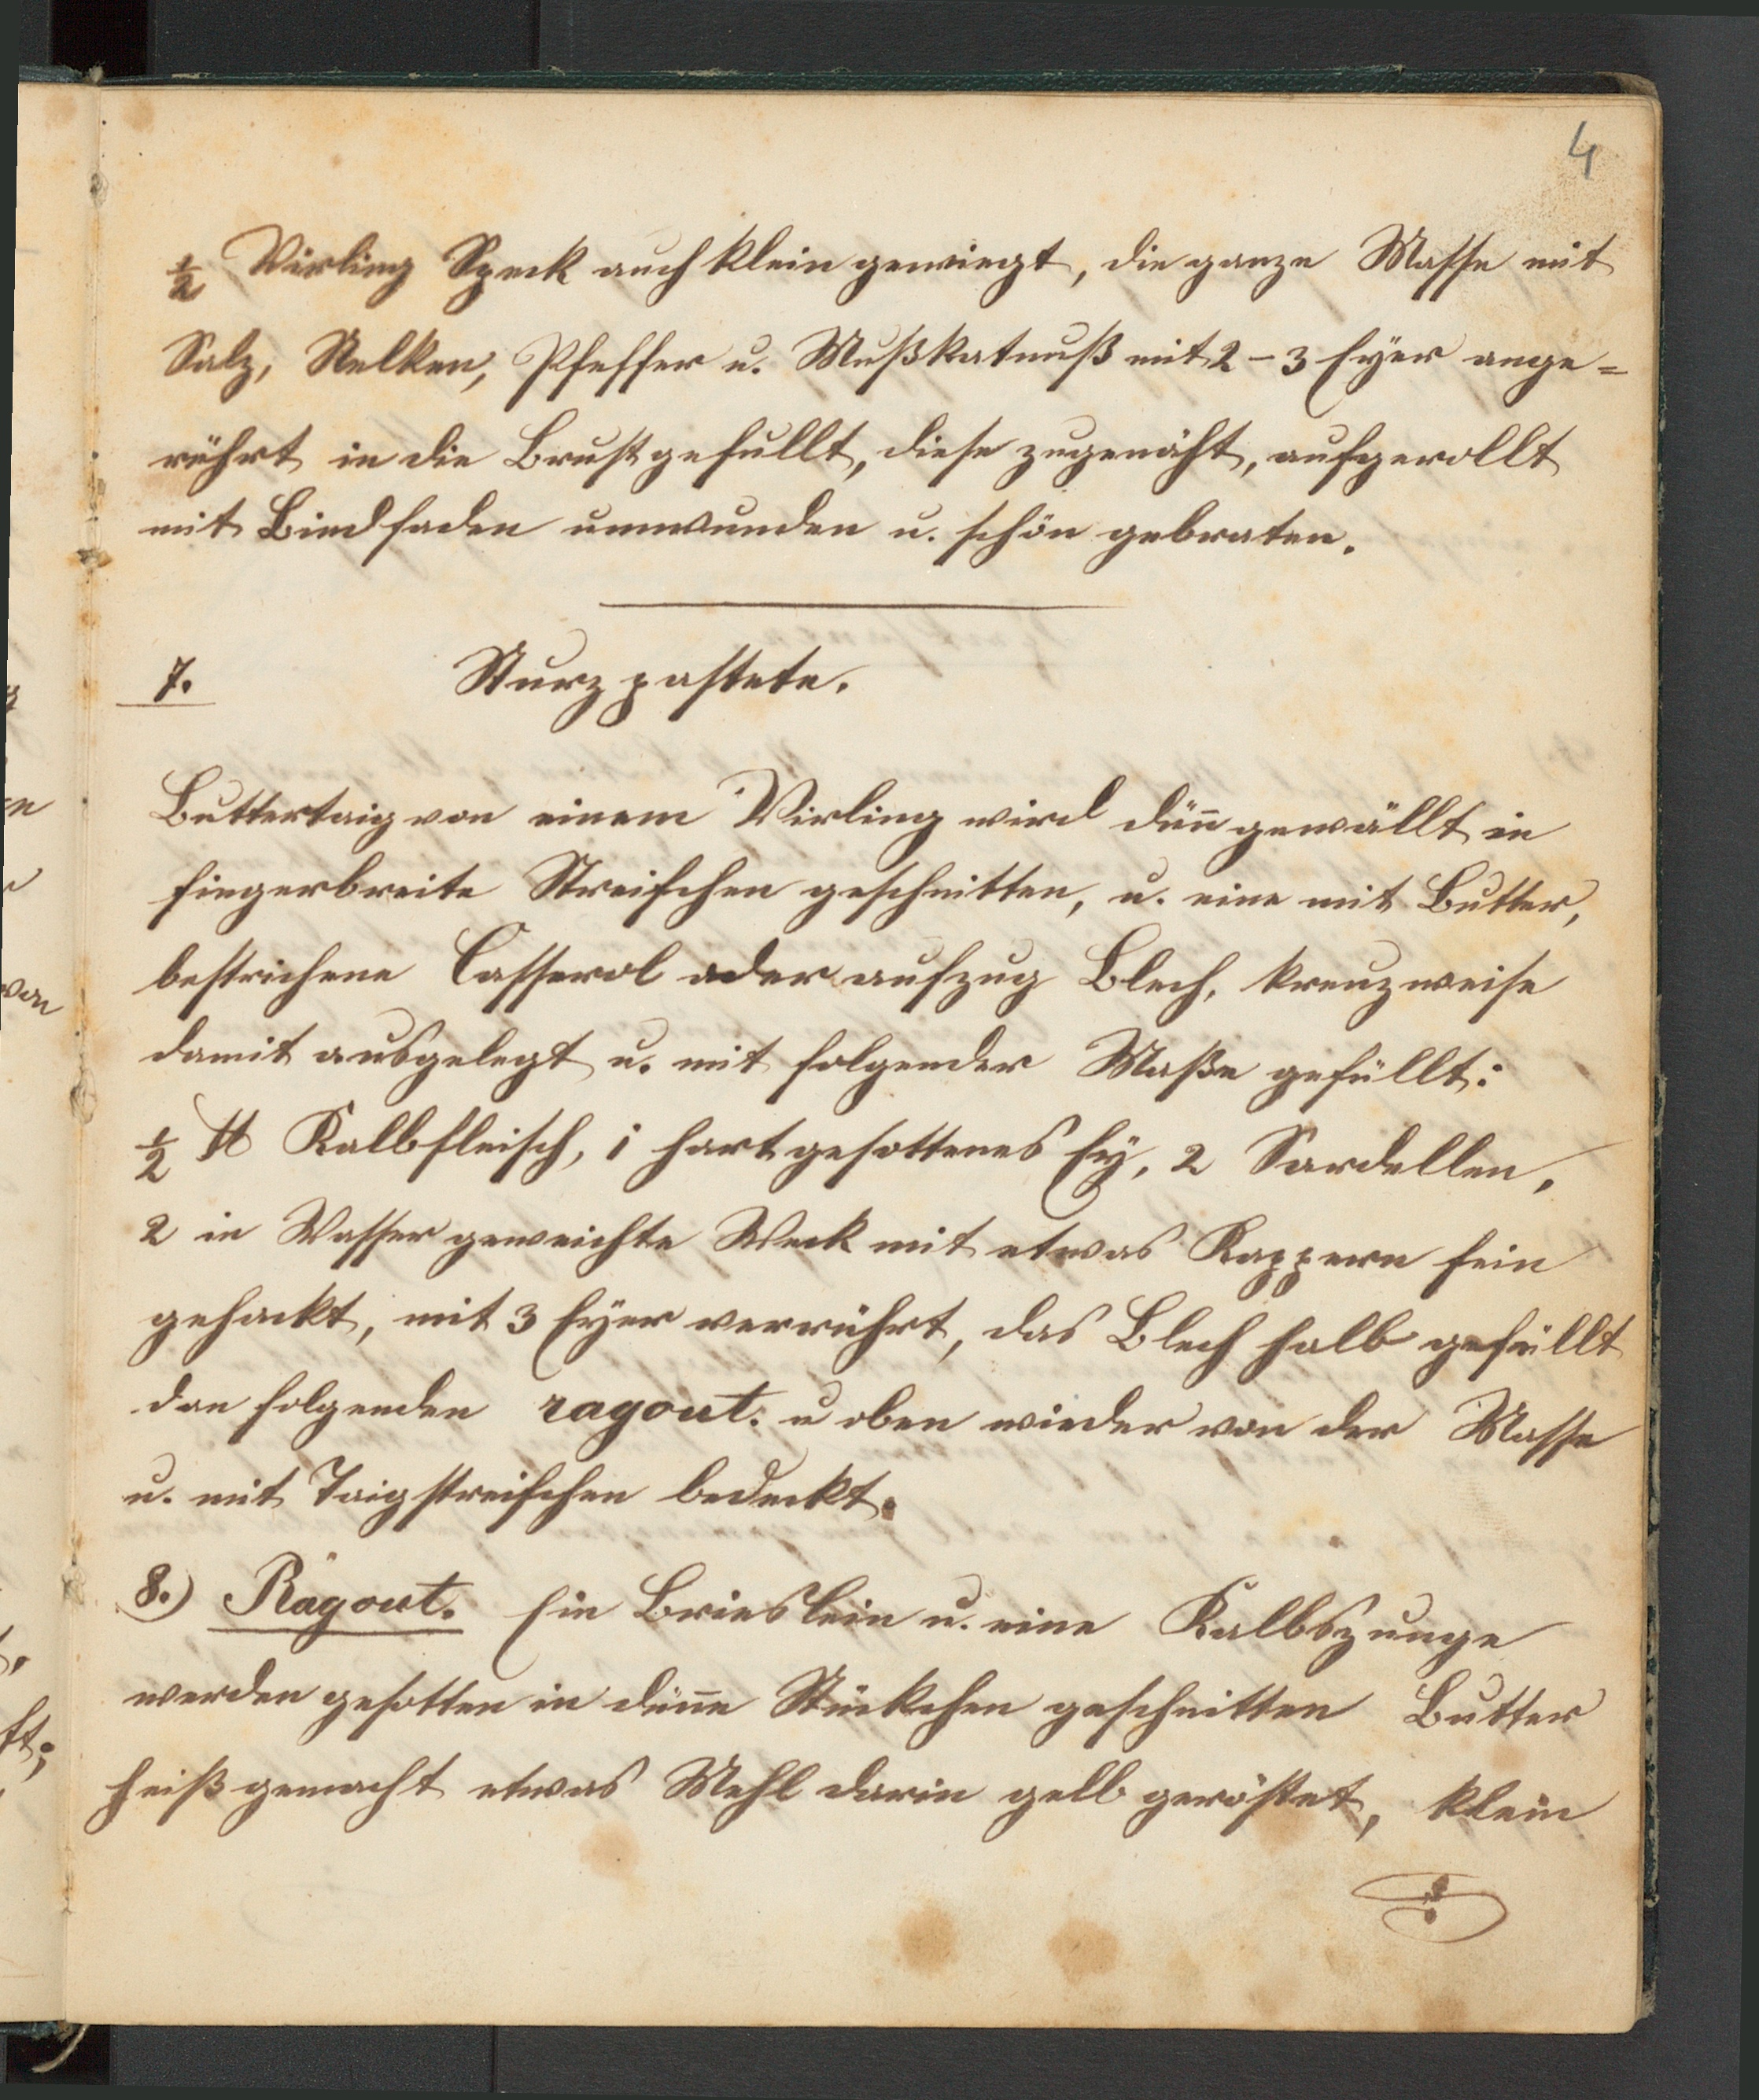 4
½ Virling Speck auch klein gewiegt, die ganze Masse mit
Salz, Nelken, Pfeffer u. Mußkatnuß mit 2–3 Eÿer ange=
rührt in die Brust gefullt, diese zugenäht, aufgerollt
mit Bindfaden umwunden u. schön gebraten.
7. Sturzpastete.
Buttertaig von einem Virling wird dün̄ gewällt in
fingerbreite Streifchen geschnitten, u. eine mit Butter,
bestrichene Casserol oder aufzug Blech, kreuzweise
damit ausgelegt u. mit folgender Maße gefüllt:
½ ℔ Kalbfleisch, 1 hart gesottenes Eÿ, 2 Sardellen,
2 in Wasser geweichte Weck mit etwas Kappern fein
gehackt, mit 3 Eÿer verrührt, das Blech halb gefüllt
dan folgenden ragout. u oben wieder von der Masse
u. mit Taigstreifchen bedeckt.
8.) Ragout. Ein Brieslein u. eine Kalbszunge
werden gesotten in dün̄e Stückchen geschnitten Butter
heiß gemacht etwas Mehl darin gelb geröstet, klein